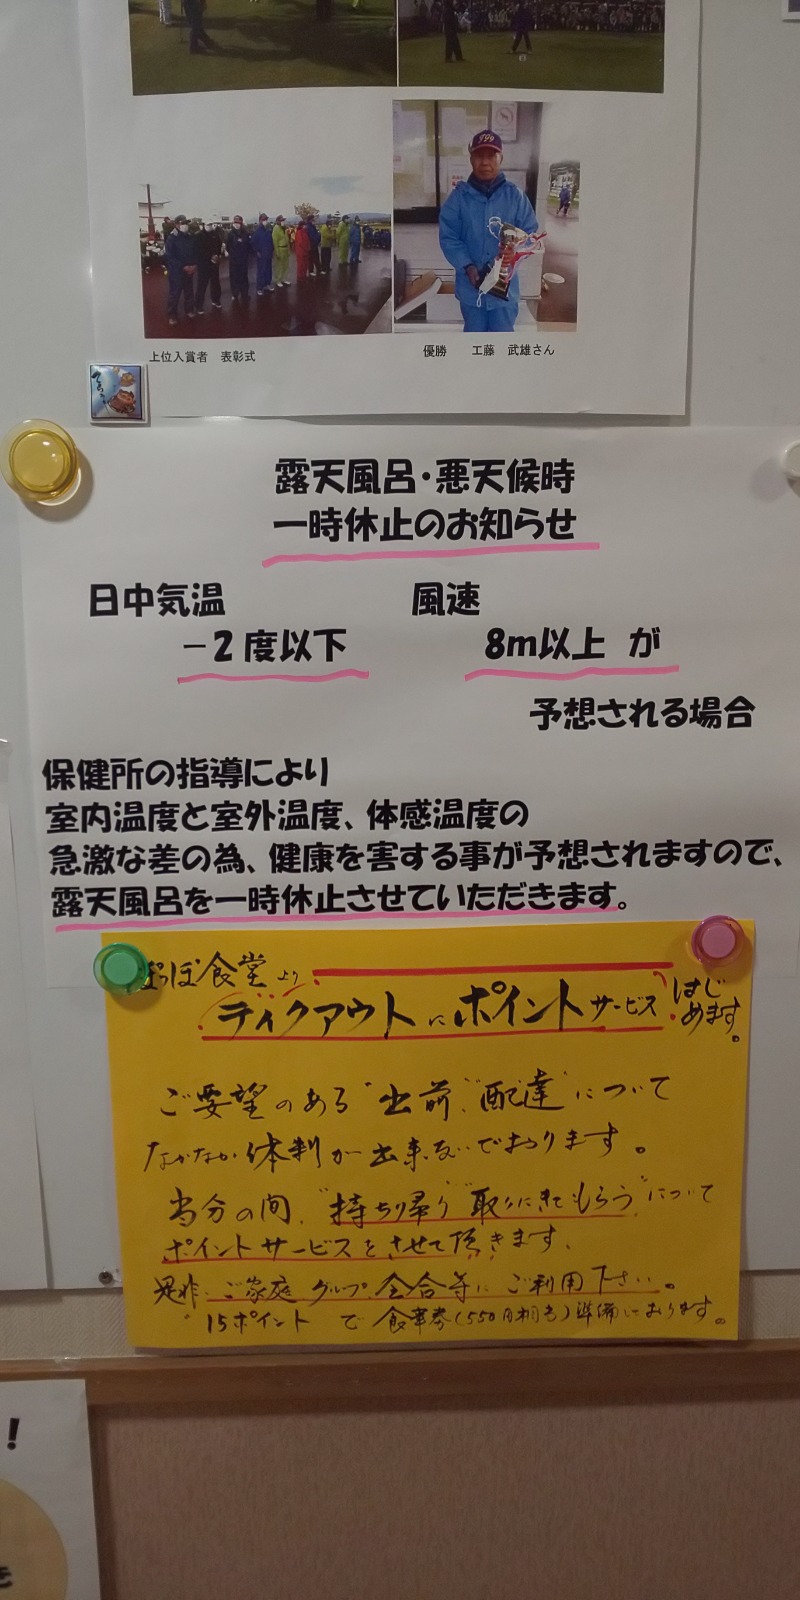 上位入賞者 表彰式
優勝 工藤 武雄さん
露天風呂・悪天候時
一時休止のお知らせ
日中気温 風速
－2度以下 8m以上 が
予想される場合
保健所の指導により
室内温度と室外温度、体感温度の
急激な差の為、健康を害する事が予想されますので、
露天風呂を一時休止させていただきます。
ぽっぽ食堂より
テイクアウトにポイントサービスはじめます。
ご要望のある"出前""配達"について
なかなか体制が出来ないでおります。
当分の間、"持ち帰り""取りにきてもらう"について
ポイントサービスをさせて頂きます、
是非、ご家庭、グループ、会合等にご利用下さい。
15ポイント で 食事券(550円相当)準備しております。
!